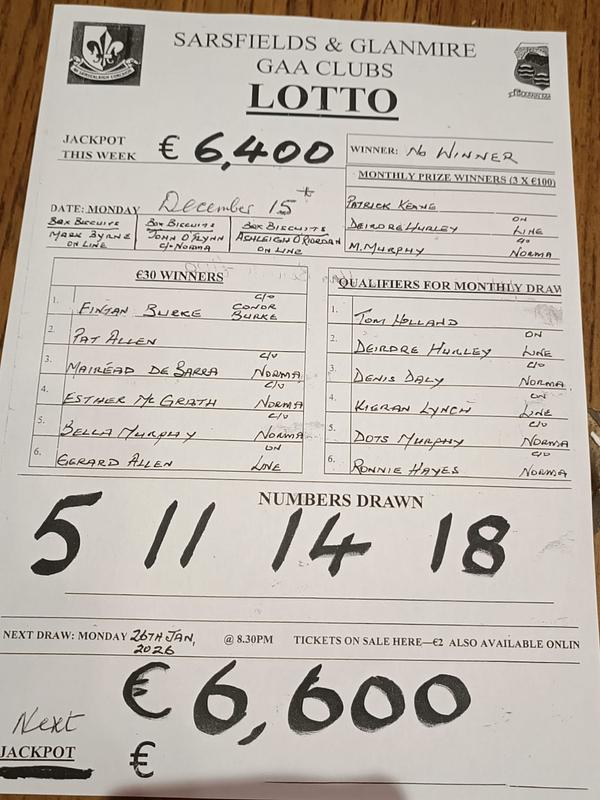 SARSFIELDS & GLANMIRE
GAA CLUBS
LOTTO
JACKPOT
THIS WEEK € 6,400
WINNER: No WINNER
MONTHLY PRIZE WINNERS (3 X €100)
PATRICK KEANE
DEIRDRE HURLEY ON LINE
M. MURPHY c/o NORMA
DATE: MONDAY December 15th
BOX BISCUITS MARK BYRNE ON LINE
BOX BISCUITS JOHN O'FLYNN c/o NORMA
BOX BISCUITS ASHLEIGH O'RIORDAN ON LINE
€30 WINNERS
1. FINTAN BURKE c/o CONOR BURKE
2. PAT ALLEN
3. MAIRÉAD DE BARRA c/o NORMA
4. ESTHER Mc GRATH c/o NORMA
5. BELLA MURPHY c/o NORMA
6. GERARD ALLEN ON LINE
QUALIFIERS FOR MONTHLY DRAW
1. TOM HOLLAND
2. DEIRDRE HURLEY ON LINE
3. DENIS DALY c/o NORMA
4. KIERAN LYNCH ON LINE
5. DOTS MURPHY c/o NORMA
6. RONNIE HAYES c/o NORMA
NUMBERS DRAWN
5 11 14 18
NEXT DRAW: MONDAY 26TH JAN, 2026 @ 8.30PM TICKETS ON SALE HERE—€2 ALSO AVAILABLE ONLIN
€6,600
Next
JACKPOT €